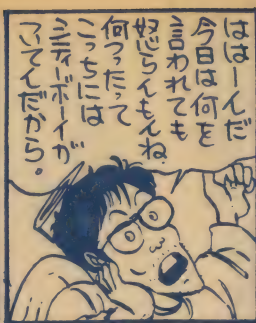 ははーんだ
今日は何を
言われても
怒らんもんね。
何つったって
こっちには
シティーボーイが
ついてんだから。